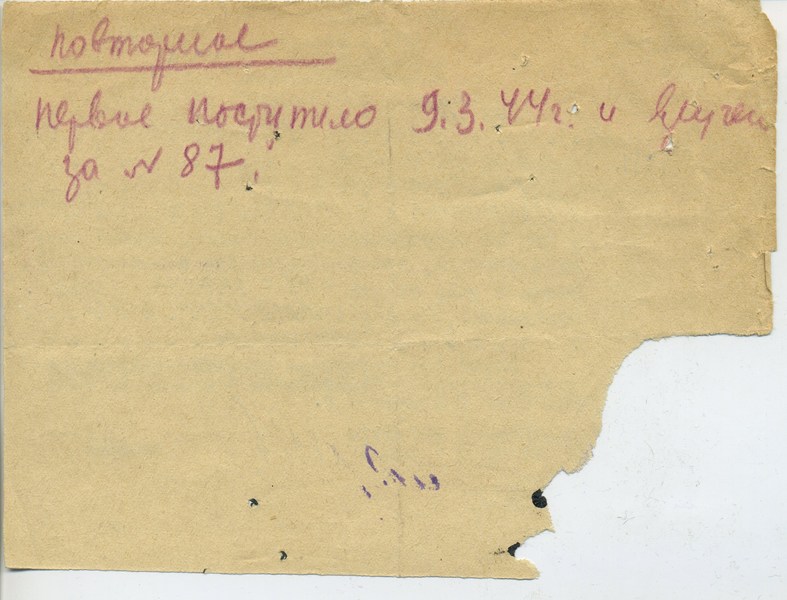 повторное
первое поступило 9.3.44г. и вручен
за № 87.